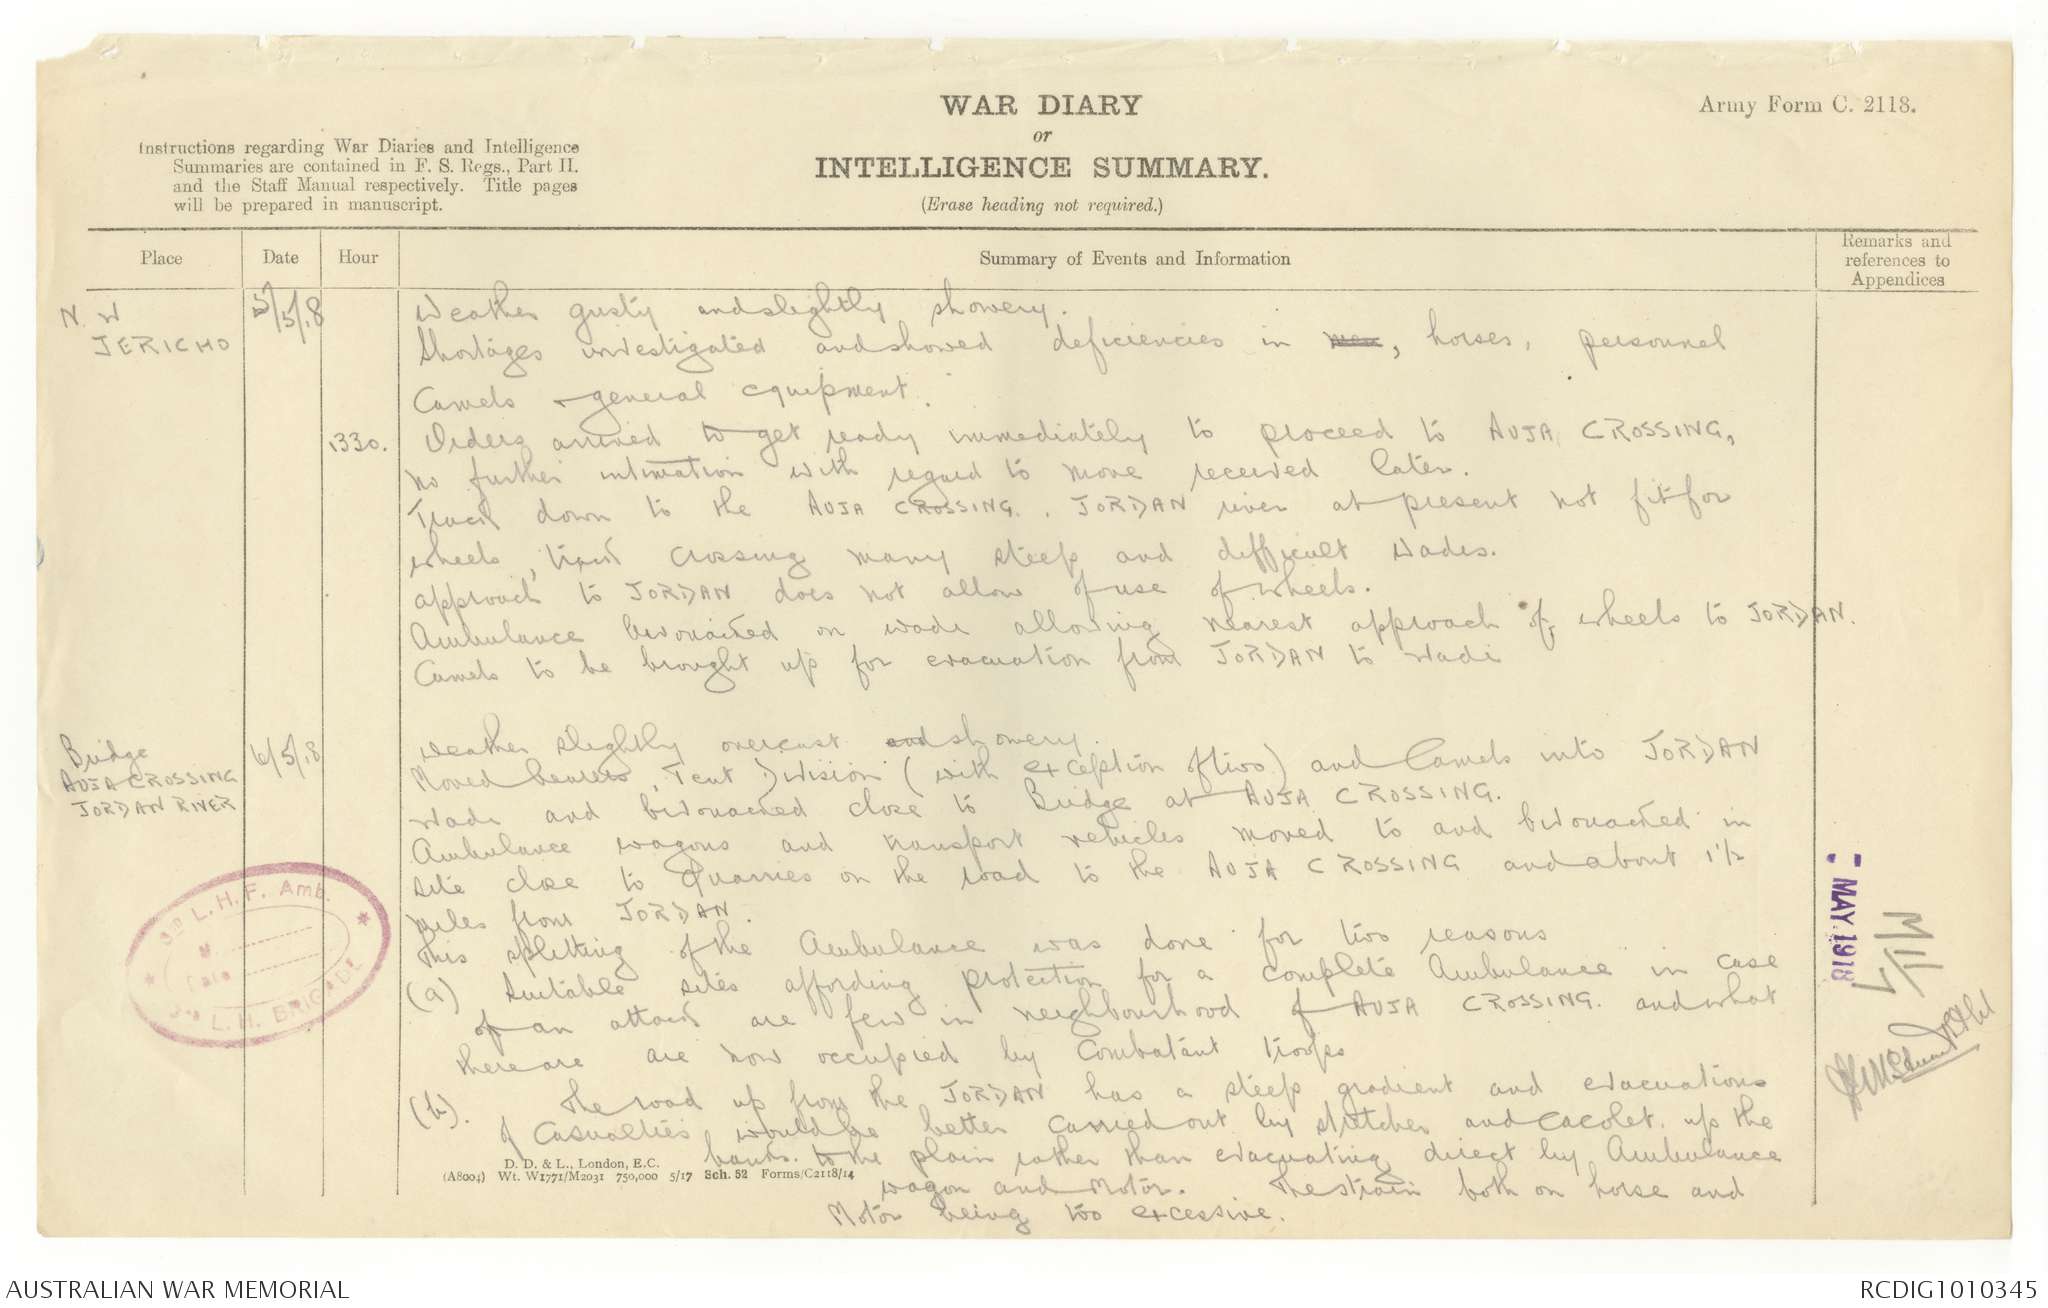 WAR DIARY
or
INTELLIGENCE SUMMARY.
(Erase heading not required.)
Army Form C. 2118.
Instructions regarding War Diaries and Intelligence
Summaries are contained in F. S. Regs., Part II.
and the Staff Manual respectively. Title pages
will be prepared in manuscript.
Place
Date
Hour
Summary of Events and Information
Remarks and
references to
Appendices
N. W
JERICHO
5/5/18
Weather gusty and slightly showery.
Shortages investigated and showed deficiencies in men, horses, personnel
Camels & general equipment.
1330.
Orders arrived to get ready immediately to proceed to AUJA CROSSING,
no further intimation with regard to move received later.
Track down to the AUJA CROSSING. JORDAN river at present not fit for
wheels, track crossing many steep and difficult wadis.
approach to JORDAN does not allow of use of wheels.
Ambulance bivouacked on wadi allowing nearest approach of wheels to JORDAN.
Camels to be brought up for evacuation from JORDAN to wadi
Bridge
AUJA CROSSING
JORDAN RIVER
6/5/18
Weather slightly overcast and showery.
Moved bearers, Tent Division (with exception of two) and Camels into JORDAN
Wadi and bivouacked close to Bridge at AUJA CROSSING.
Ambulance wagons and transport vehicles moved to and bivouacked in
site close to Quarries on the road to the AUJA CROSSING and about 1½
miles from JORDAN.
This splitting of the Ambulance was done for two reasons
(a) Suitable sites affording protection for a complete Ambulance in case
of an attack are few in neighbourhood of AUJA CROSSING. and what
there are are now occupied by Combatant troops
(b). The road up from the JORDAN has a steep gradient and evacuations
of casualties would be better carried out by stretcher and cacolet up the
banks to the plain rather than evacuating direct by Ambulance
wagon and Motor. The strain both on horse and
Motor being too excessive.
3RD L.H.F. Amb.
M
Date
3RD L.H. BRIGADE
MAY.1918
D. D. & L., London, E.C.
(A8004) Wt. W1771/M2031 750,000 5/17 Sch. 52 Forms/C2118/14
AUSTRALIAN WAR MEMORIAL
RCDIG1010345